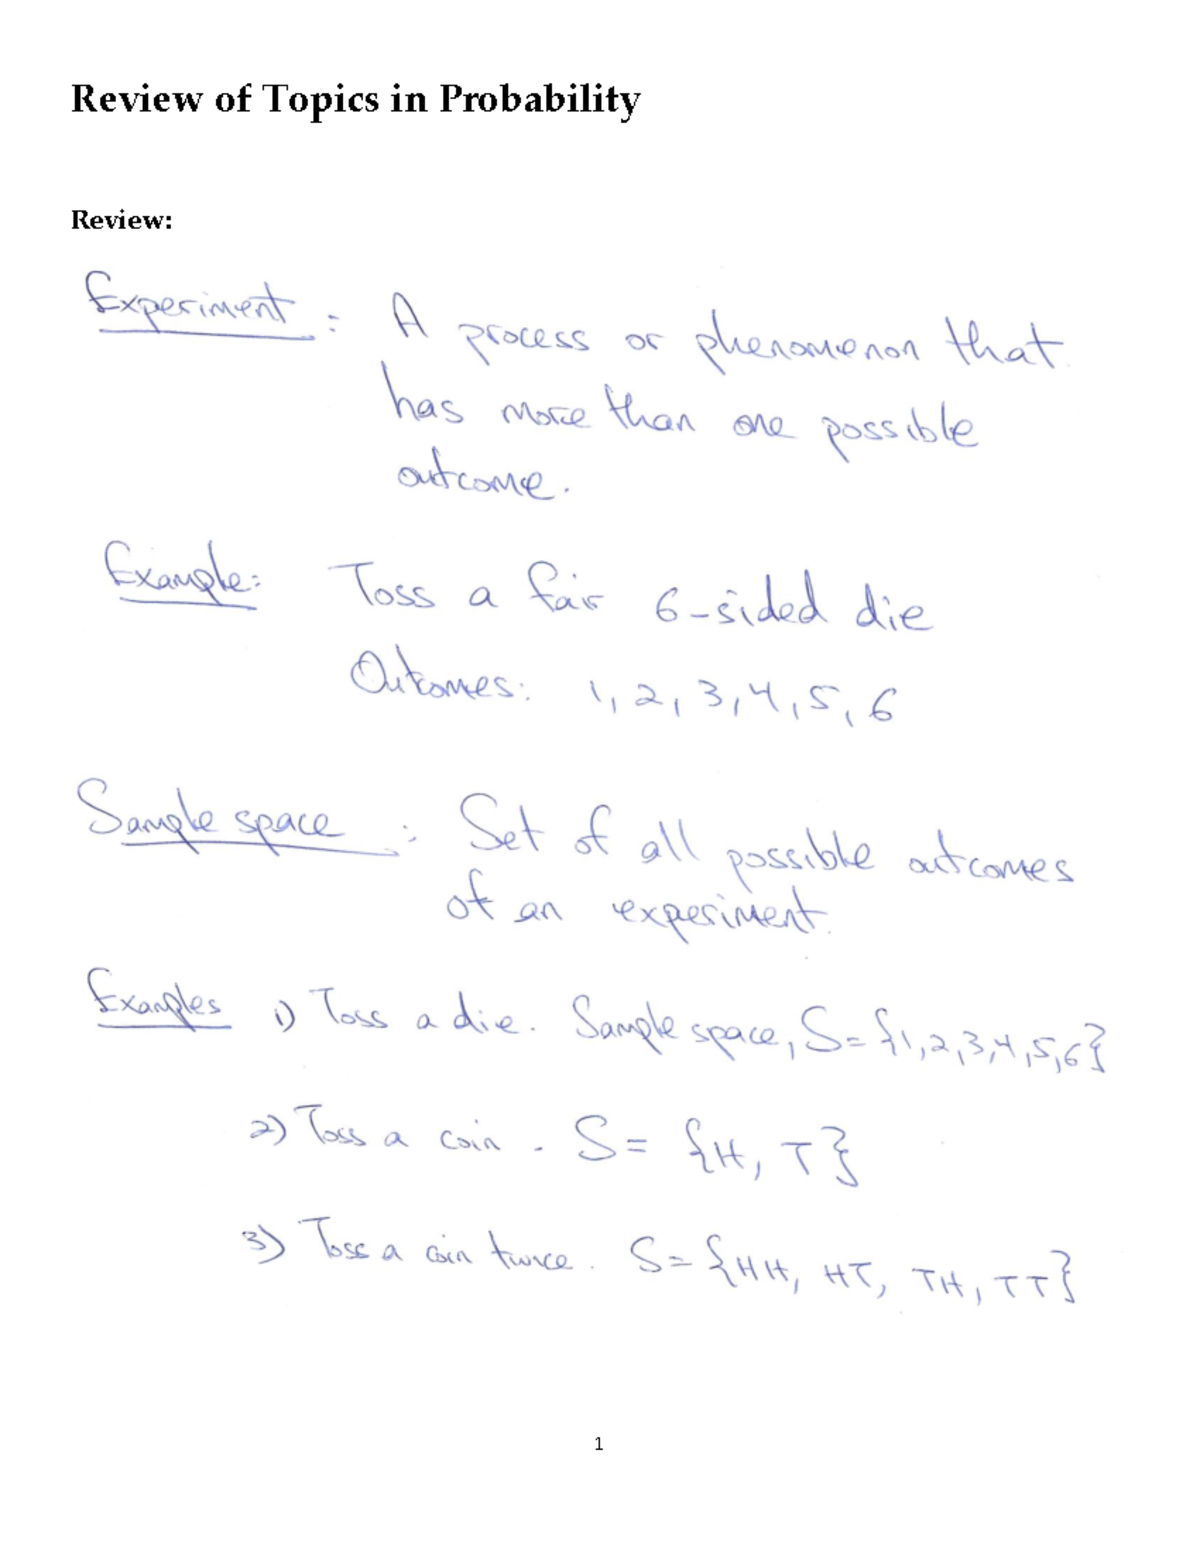 Review of Topics in Probability
Review:
Experiment: A process or phenomenon that
has more than one possible
outcome.
Example: Toss a fair 6-sided die
Outcomes: 1, 2, 3, 4, 5, 6
Sample space: Set of all possible outcomes
of an experiment.
Examples 1) Toss a die. Sample space, S = {1,2,3,4,5,6}
2) Toss a coin. S = {H, T}
3) Toss a coin twice. S = {HH, HT, TH, TT}
1